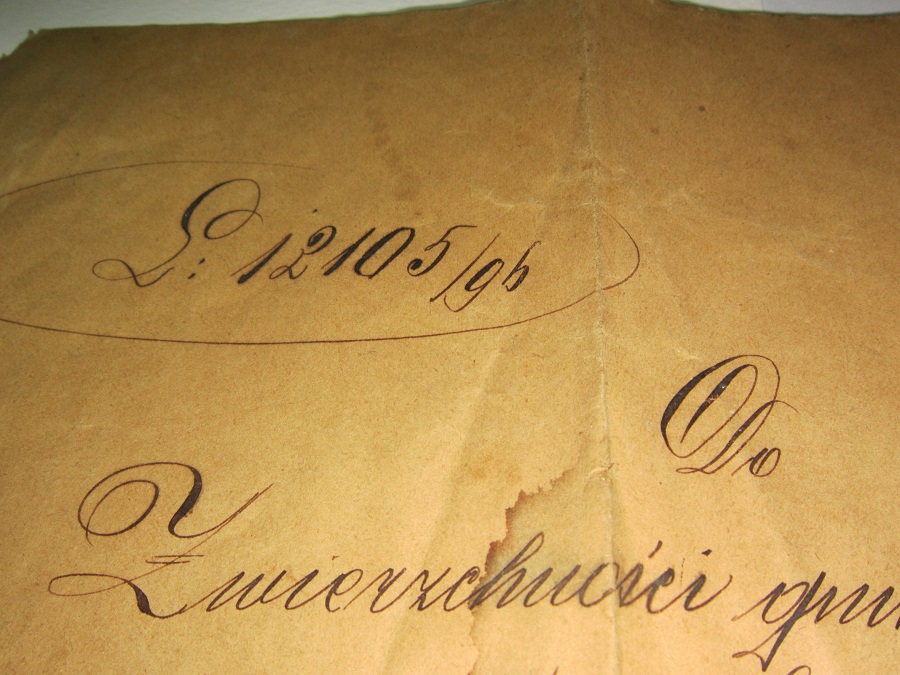 L: 12105/96
Do
Zwierzchności gmi